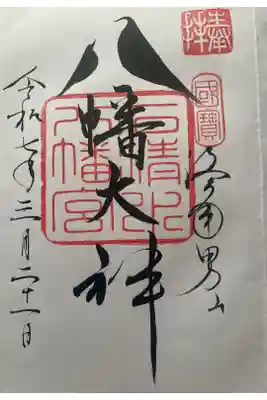 奉拝
國寶
洛南男山
八幡大神
石清水
八幡宮
令和七年三月二十一日